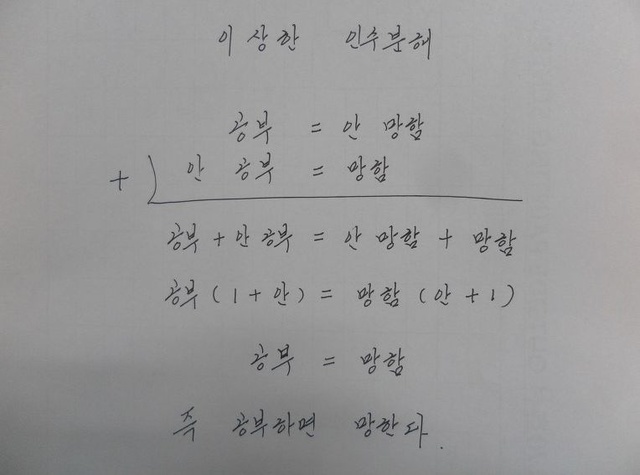 이상한 인수분해
공부 = 안 망함
+) 안 공부 = 망함
공부 + 안 공부 = 안 망함 + 망함
공부 (1 + 안) = 망함 (안 + 1)
공부 = 망함
즉 공부하면 망한다.